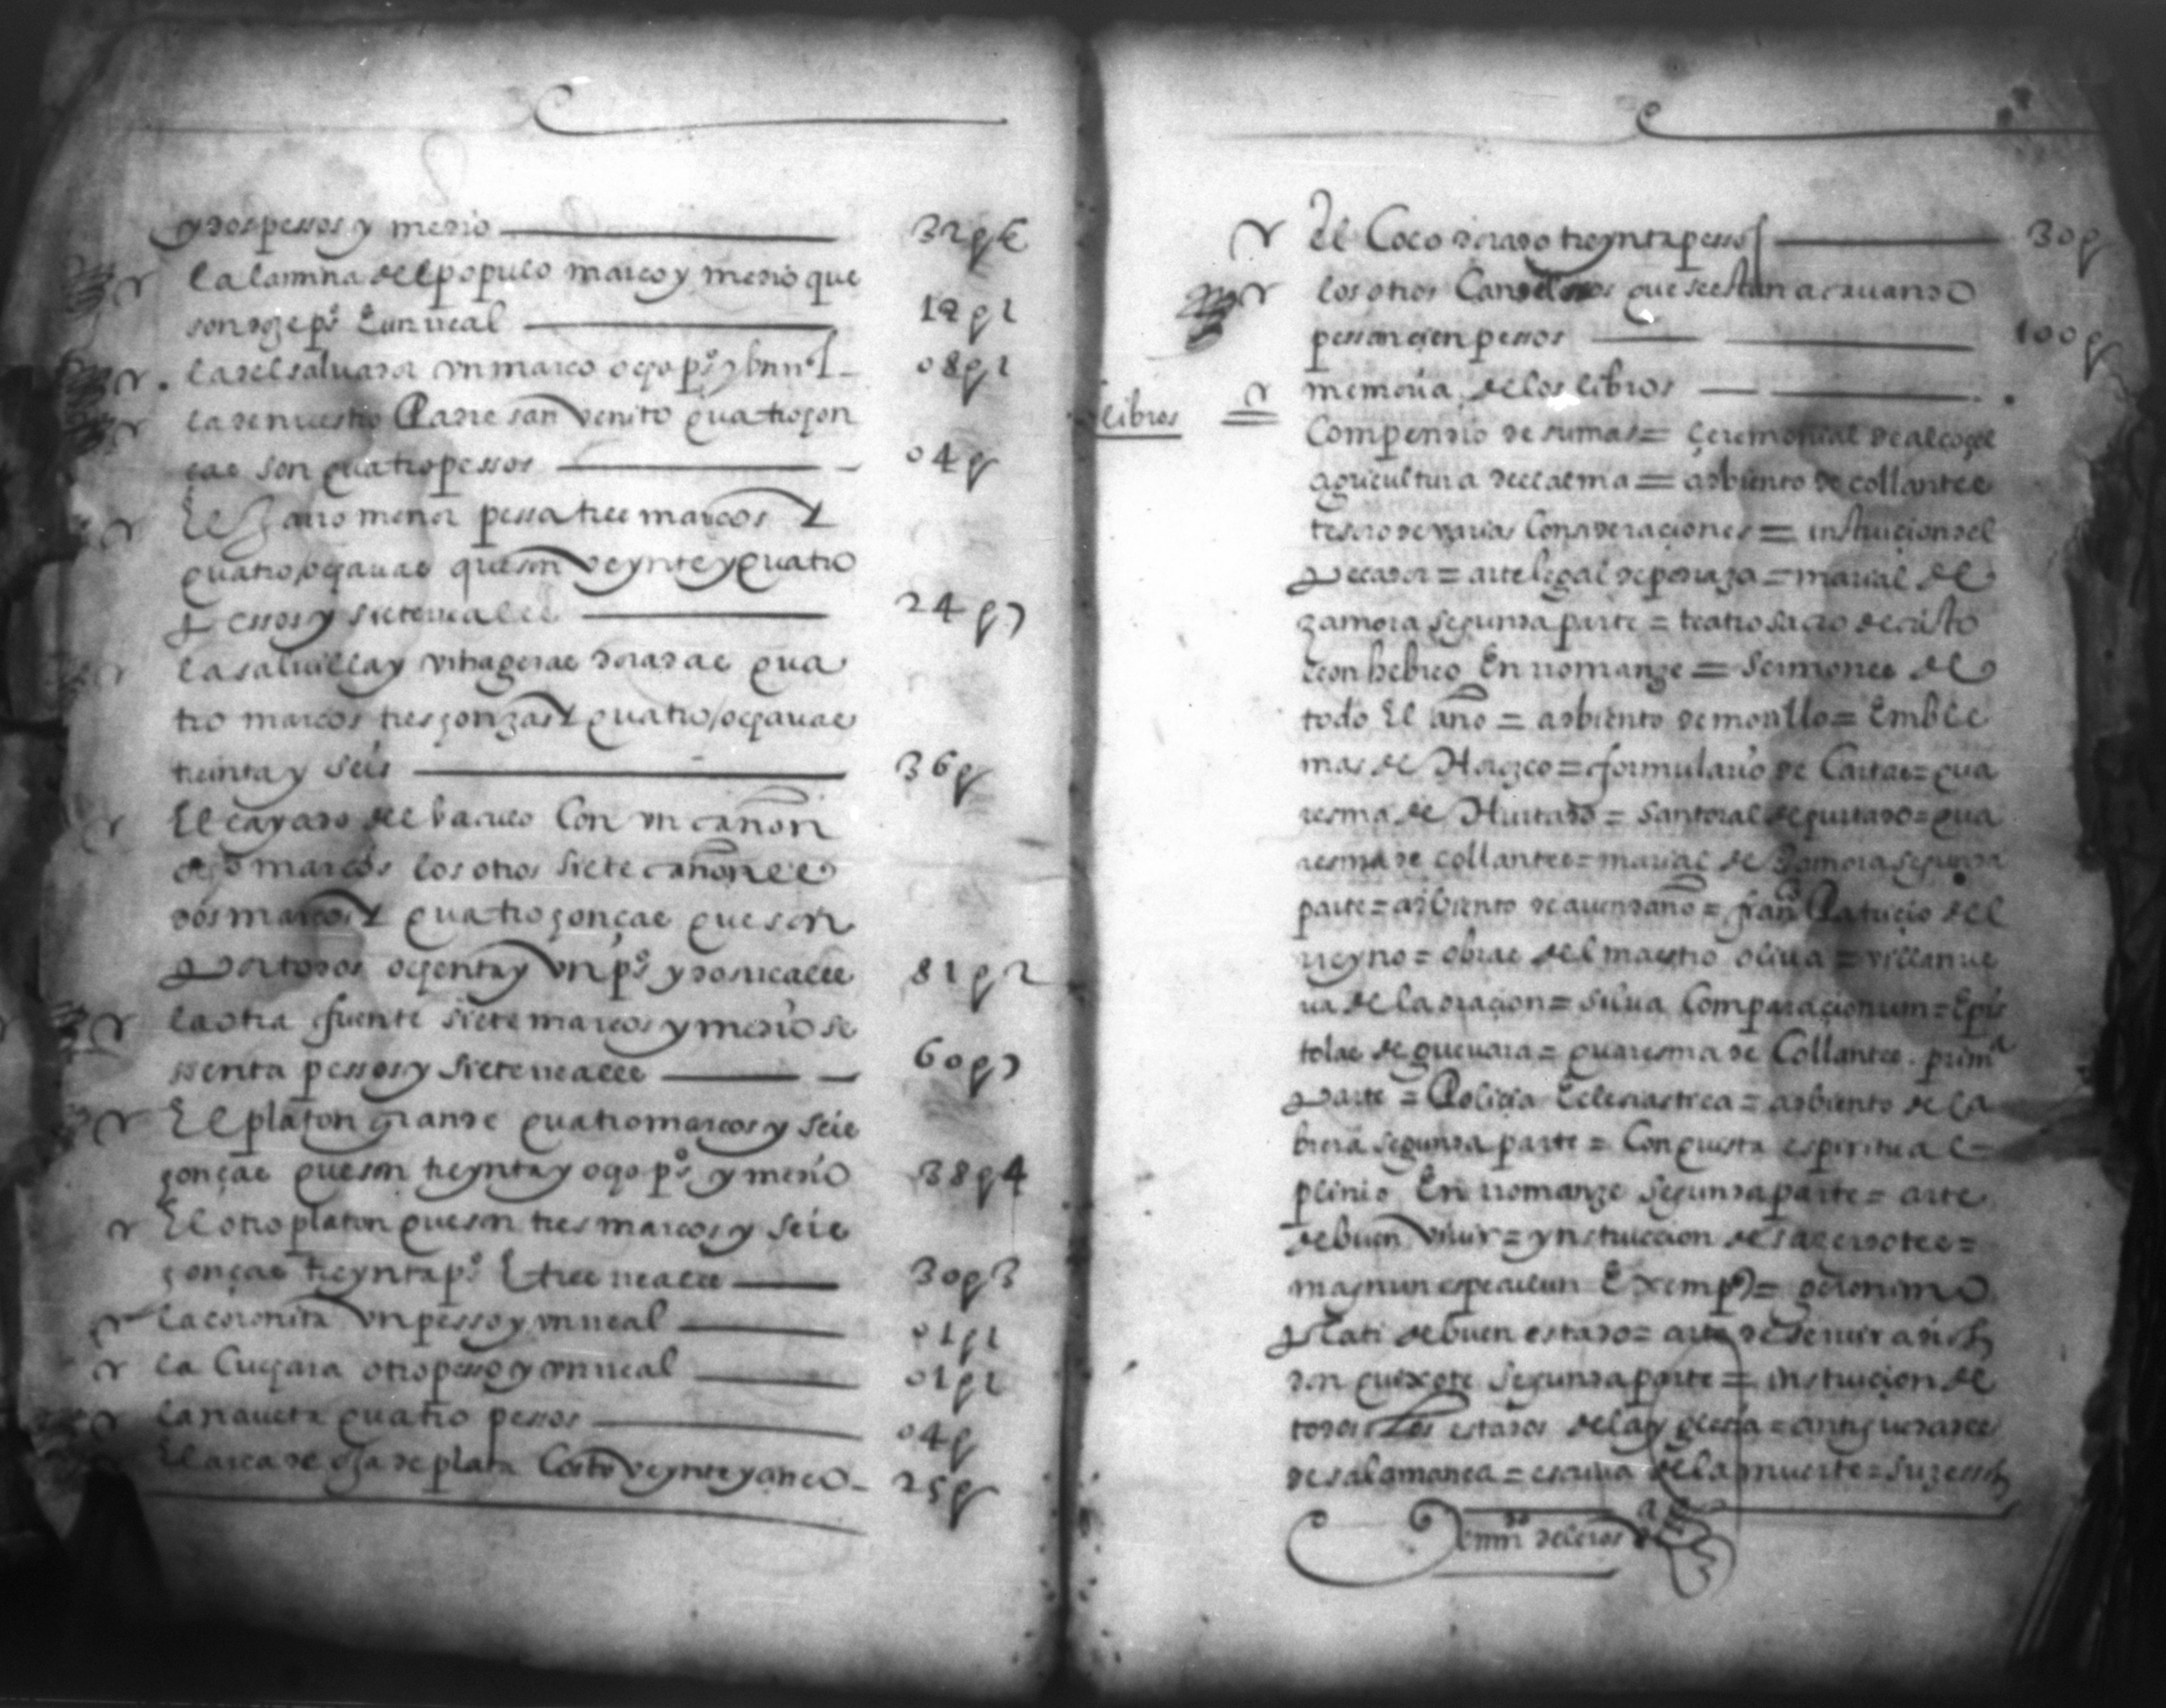 y dos pessos y medio 32 p 4
la lamina del populo marco y medio que
son doze p.s E un rreal 12 p 1
la del saluador un marco ocho p.s y un rr.l 08 p 1
la de nuestro Padre san venito quatro zon
çae son quatro pessos 04 p
El Jarro menor pessa tres marcos Y
quatro ochauas que son veynte y quatro
pessos y siete rreales 24 p 7
la saluilla y vinageras doradas qua
tro marcos tres zonzas Y quatro ochauas
treinta y seis 36 p
El cayado del baculo Con un cañon
ocho marcos los otros siete cañones
dos marcos Y quatro zonças que son
Por todos ochenta y un p.s y dos rreales 81 p 2
la otra fuente siete marcos y medio se
senta pessos y siete rreales 60 p 7
El platon grande quatro marcos y seis
zonças que son treynta y ocho p.s y medio 38 p 4
El otro platon que son tres marcos y seis
zonças treynta p.s E tres rreales 30 p 3
la coronita un pesso y un rreal 01 p 1
la Cuchara otro pesso y un rreal 01 p 1
la naueta quatro pessos 04 p
El arca de oja de plata Costo veynte y cinco 25 p
El Coco dorado treynta pessos 30 p
los otros Candeleros que se estan acauando
pessan cien pessos 100 p
libros
memoria de los libros
Compendio de sumas = Çeremonial de alcoçel
agricultura del alma = adbiento de collantes
tesoro de varias Consideraçiones = instruiçion del
Pecador = arte legal de pedraza = marial de
zamora segunda parte = teatro sacro de cristo
leon hebreo En rromanze = Sermones de
todo El año = adbiento de morillo = Emble
mas de Horozco = formulario de Cartas = qua
resma de Hurtado = Santoral de hurtado = qua
resma de collantes = marial de Zamora segunda
parte = adbiento de auendaño = fran.co Patricio del
rreyno = obras del maestro oliua = villanue
ua de la oraçion = silua Comparaçionum = Epis
tolas de gueuara = quaresma de Collantes prim.a
Parte = Poliçia Eclesiastica = adbiento de ca
brera segunda parte = Conquista espiritual =
plinio En rromanze segunda parte = arte
de buen viuir = ynstruccion de saçerdotes =
magnun especulun Exemp = geronimo
Plati de buen estado = arte de seruir a dios
don quixote segunda parte = instruiçion de
todos los estados de la ygleçia = antiguedades
de salamanca = esquiua de la muerte = suzess